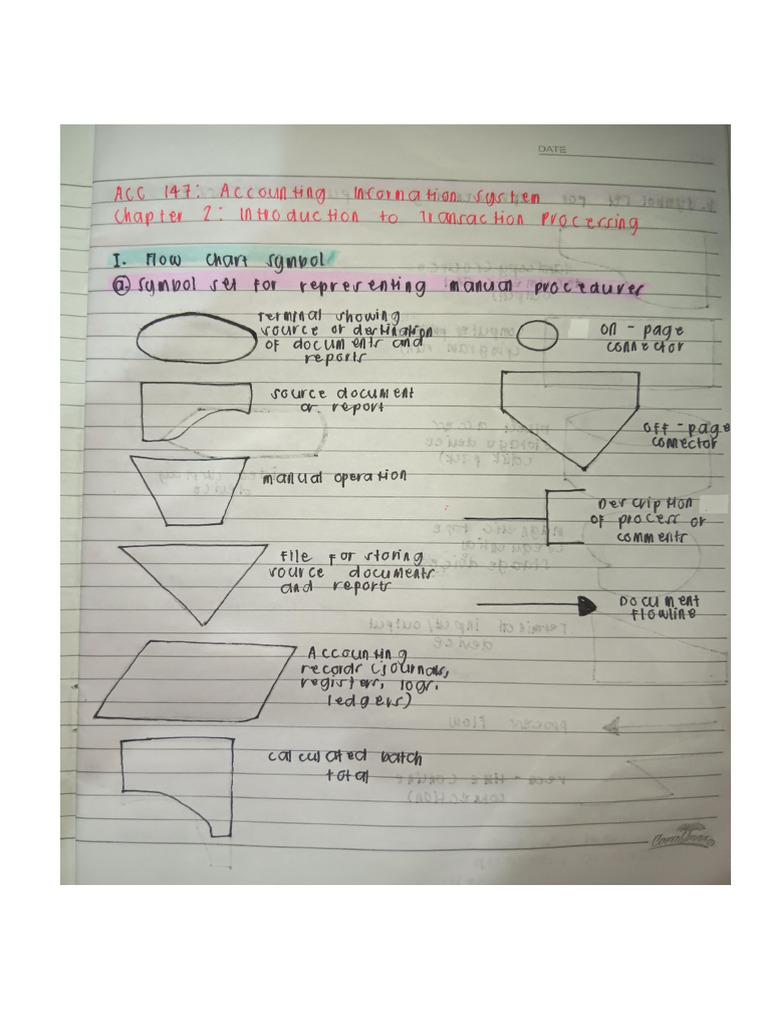 DATE
ACC 147: Accounting Information System
Chapter 2: Introduction to Transaction Processing
I. Flow Chart Symbol
a. Symbol set for representing manual procedures
Terminal showing
source or destination
of documents and
reports
On-page
connector
source document
or report
Off-page
connector
manual operation
Description
of process or
comments
File for storing
source documents
and reports
Document
flowline
Accounting
records (journals,
registers, logs,
ledgers)
calculated batch
total